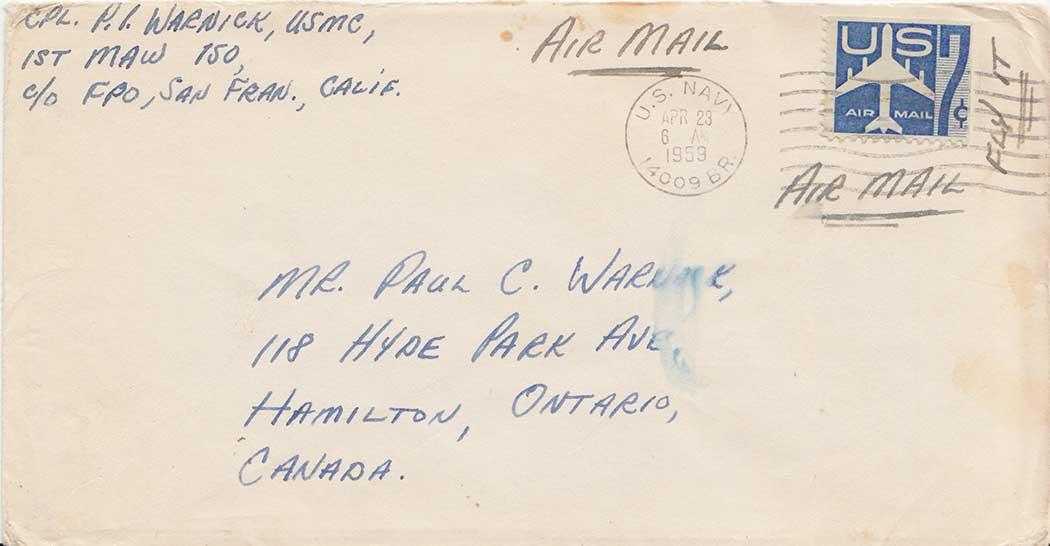 CPL. P.I. WARNICK, USMC,
1ST MAW 150,
c/o FPO, SAN FRAN., CALIF.
AIR MAIL
U.S. NAVY
APR 23
6 AM
1959
14009 BR.
US
7¢
AIR MAIL
FLY IT
AIR MAIL
MR. PAUL C. WARNICK,
118 HYDE PARK AVE,
HAMILTON, ONTARIO,
CANADA.